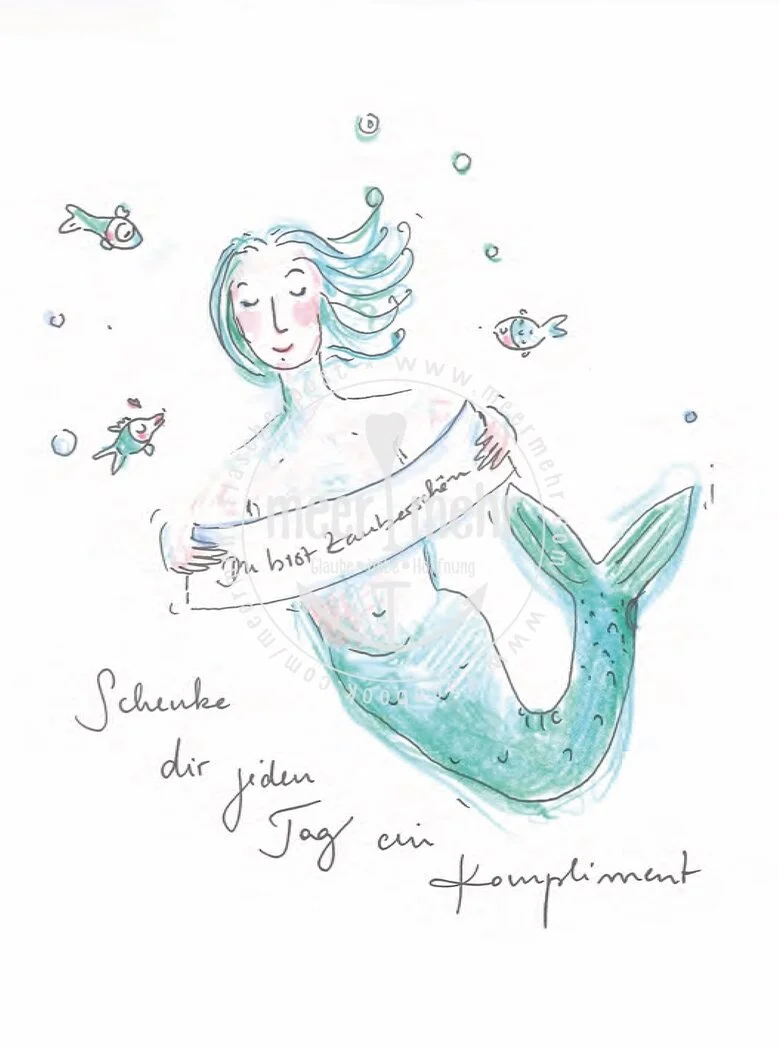 Du bist Zauberschön
Schenke
dir jeden
Tag ein
Kompliment
meer mehr
Glaube • Liebe • Hoffnung
www.meermehr.com